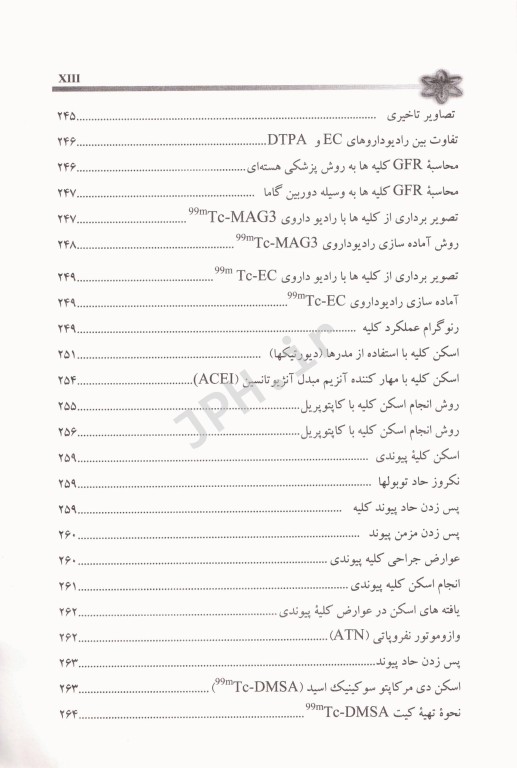 XIII
تصاویر تاخیری ..... ۲۴۵
تفاوت بین رادیوداروهای EC و DTPA ..... ۲۴۶
محاسبۀ GFR کلیه ها به روش پزشکی هسته‌ای ..... ۲۴۶
محاسبۀ GFR کلیه ها به وسیله دوربین گاما ..... ۲۴۷
تصویر برداری از کلیه ها با رادیو داروی 99mTc-MAG3 ..... ۲۴۷
روش آماده سازی رادیوداروی 99mTc-MAG3 ..... ۲۴۸
تصویر برداری از کلیه ها با رادیو داروی 99m Tc-EC ..... ۲۴۹
آماده سازی رادیوداروی 99mTc-EC ..... ۲۴۹
رنوگرام عملکرد کلیه ..... ۲۴۹
اسکن کلیه با استفاده از مدرها (دیورتیکها) ..... ۲۵۱
اسکن کلیه با مهار کننده آنزیم مبدل آنژیوتانسین (ACEI) ..... ۲۵۴
روش انجام اسکن کلیه با کاپتوپریل ..... ۲۵۵
روش انجام اسکن کلیه با کاپتوپریل ..... ۲۵۶
اسکن کلیۀ پیوندی ..... ۲۵۹
نکروز حاد توبولها ..... ۲۵۹
پس زدن حاد پیوند کلیه ..... ۲۵۹
پس زدن مزمن پیوند ..... ۲۶۰
عوارض جراحی کلیه پیوندی ..... ۲۶۰
انجام اسکن کلیه پیوندی ..... ۲۶۱
یافته های اسکن در عوارض کلیۀ پیوندی ..... ۲۶۲
وازوموتور نفروپاتی (ATN) ..... ۲۶۲
پس زدن حاد پیوند ..... ۲۶۳
اسکن دی مرکاپتو سوکینیک اسید (99mTc-DMSA) ..... ۲۶۳
نحوۀ تهیۀ کیت 99mTc-DMSA ..... ۲۶۴
JPH.ir